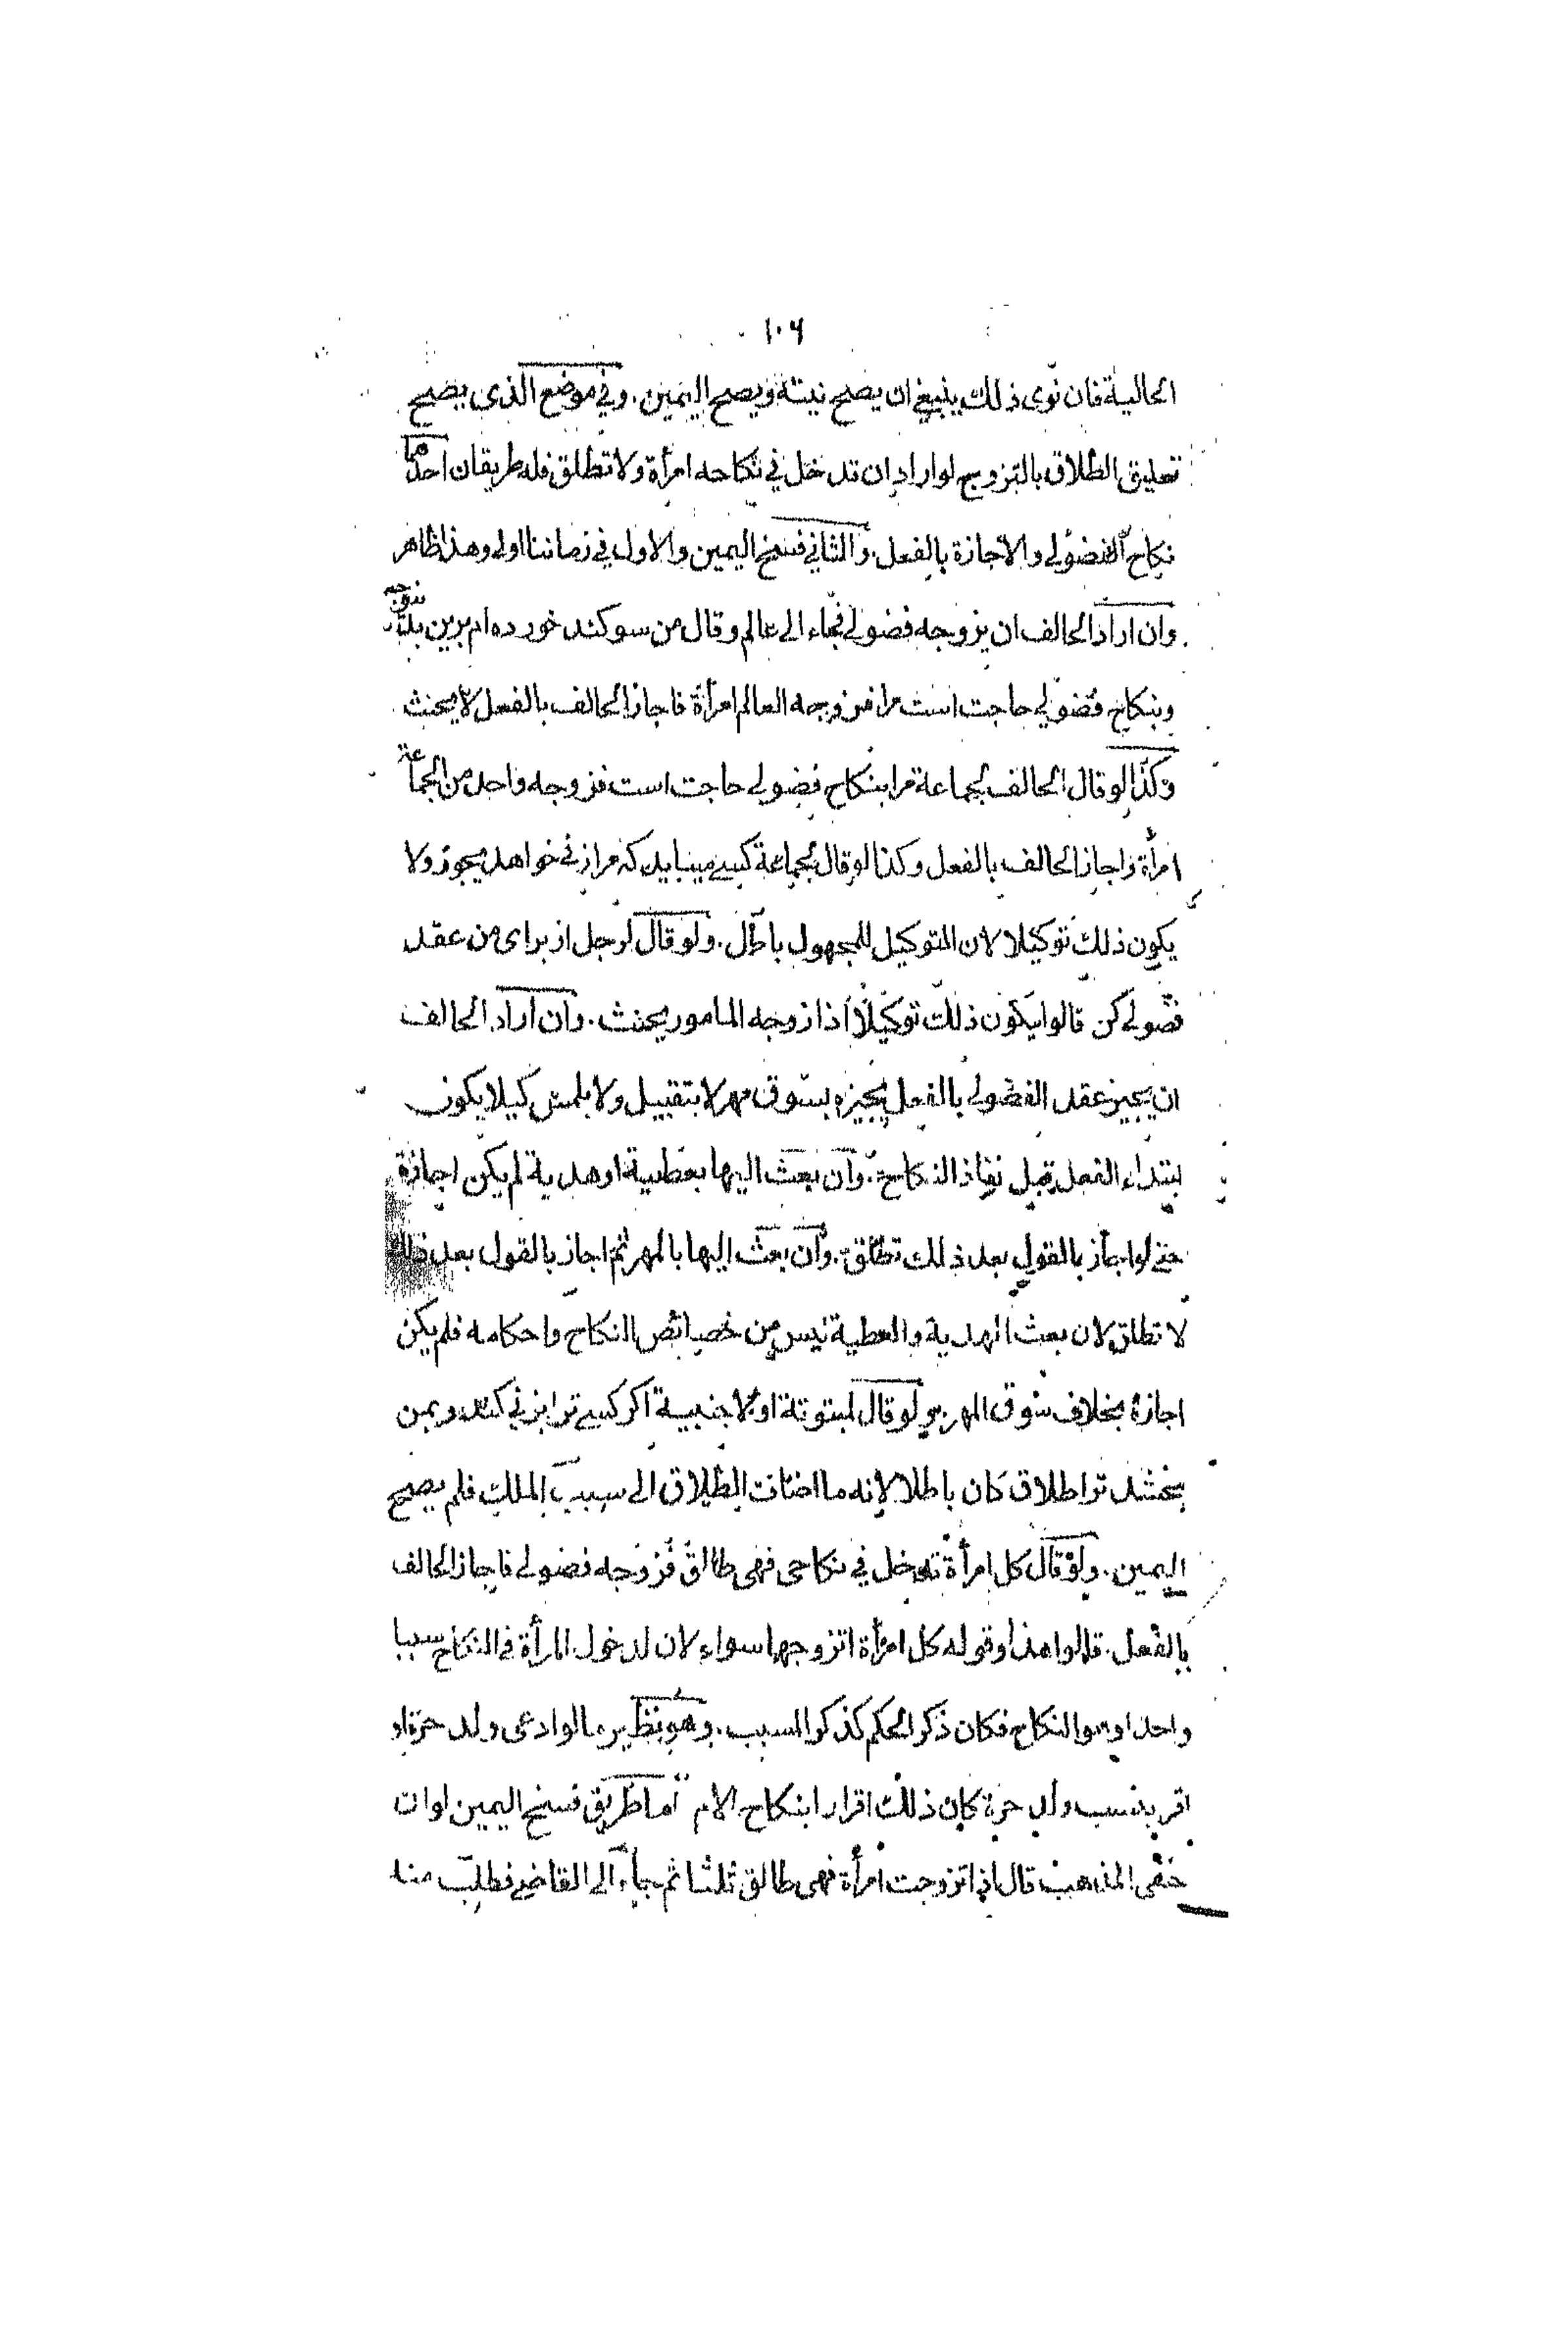 ١٠٦
الحالية فان نوى ذلك ينبغي ان يصح نيته ويصح اليمين. وفي موضع الذي يصح
تعليق الطلاق بالتزوج لو اراد ان تدخل في نكاحه امرأة ولا تطلق فله طريقان احدهما
نكاح الفضولي والاجازة بالفعل. والثاني فسخ اليمين والاول في زماننا اولى وهذا ظاهر
وان اراد الحالف ان يزوجه فضولي فجاء الى عالم وقال من سوكند خورده ام برين
وبنكاح فضولي حاجت است مرا فزوجه العالم امرأة فاجاز الحالف بالفعل لا يحنث
وكذا لو قال الحالف لجماعة مرا بنكاح فضولي حاجت است فزوجه واحد من الجماعة
امرأة واجاز الحالف بالفعل وكذا لو قال لجماعة كسى ميبايد كه مرا زنى خواهد يجوز ولا
يكون ذلك توكيلا لان التوكيل للمجهول باطل. ولو قال لرجل از براى من عقد
فضولى كن قالوا يكون ذلك توكيلا اذا زوجه المامور يحنث. وان اراد الحالف
ان يجيز عقد الفضولي بالفعل يجيزه بسوق مهر لا بتقبيل ولا بلمس كيلا يكون
ابتداء الفعل قبل نفاذ النكاح. وان بعث اليها بعطية او هدية لم يكن اجازة
حتى لو اجاز بالقول بعد ذلك تطلق. وان بعث اليها بالمهر ثم اجاز بالقول بعد ذلك
لا تطلق لان بعث الهدية والعطية ليس من خصائص النكاح واحكامه فلم يكن
اجازة بخلاف سوق المهر. ولو قال لمبتوتة او لاجنبية اكر كسى ترا بزنى كند وبمن
بخشد ترا طلاق كان باطلا لانه ما اضافت الطلاق الى سبب الملك فلم يصح
اليمين. ولو قال كل امرأة تدخل في نكاحى فهى طالق فزوجه فضولي فاجاز الحالف
بالفعل. قالوا هذا وقوله كل امرأة اتزوجها سواء لان لدخول المرأة في النكاح سببا
واحدا وهو النكاح فكان ذكر الحكم كذكر السبب. وهو نظير ما لو ادعى ولد حرة او
اقر بنسب ولد حرة كان ذلك اقرارا بنكاح الام اما طريق فسخ اليمين لو ان
حنفى المذهب قال اذا تزوجت امرأة فهى طالق ثلثا ثم جاء الى القاضي فطلب منه